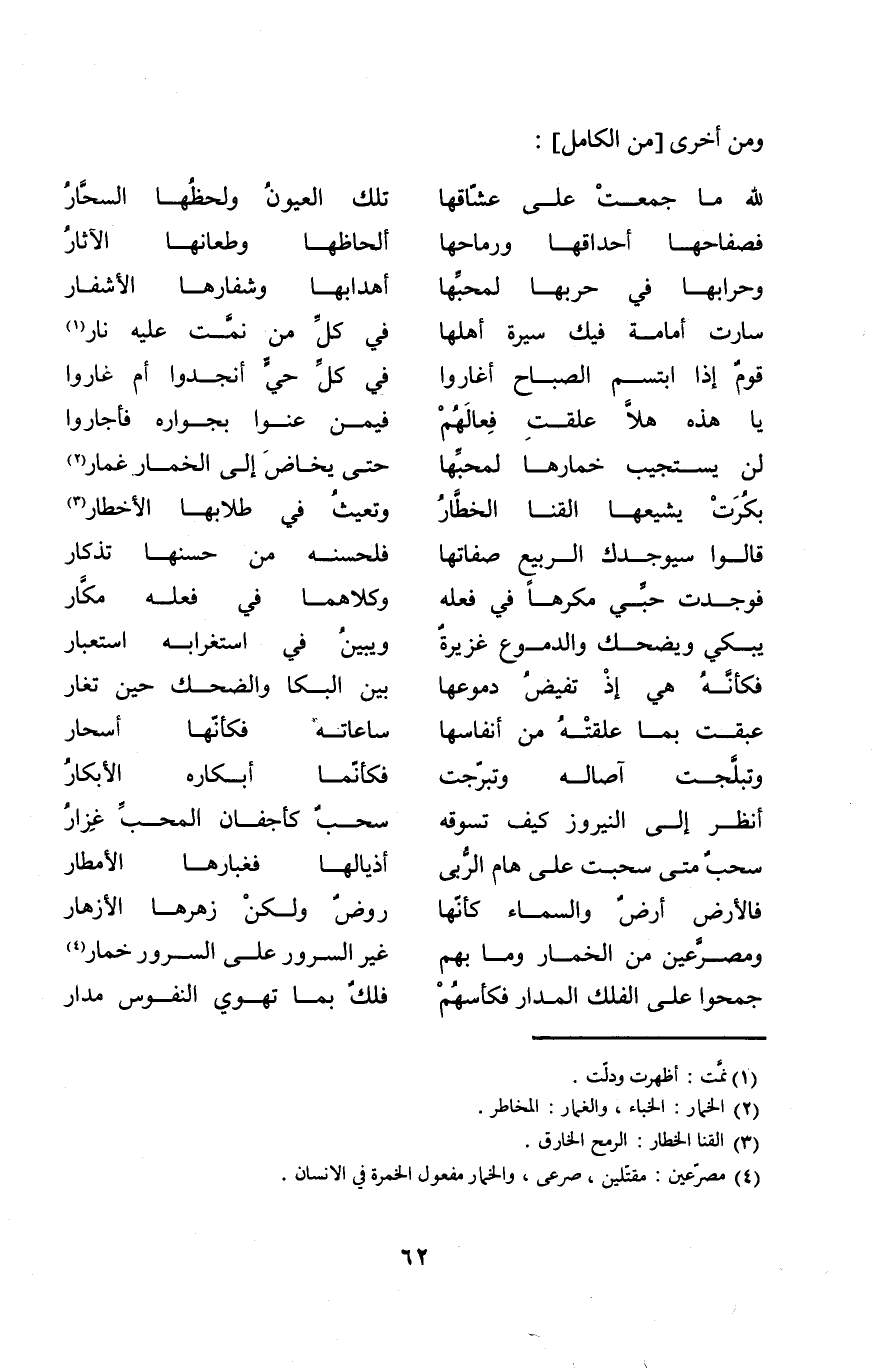 ومن أخرى [من الكامل] :
لله ما جمعتْ على عشّاقها تلك العيونُ ولحظُها السحَّارُ
فصفاحها أحداقها ورماحها ألحاظها وطعانها الآثارُ
وحرابها في حربها لمحبِّها أهدابها وشفارها الأشفار
سارت أمامة فيك سيرة أهلها في كلِّ من نمَّت عليه نار(١)
قومٌ إذا ابتسم الصباح أغاروا في كلِّ حيٍّ أنجدوا أم غاروا
يا هذه هلاَّ علقتِ فِعالَهُمْ فيمن عنوا بجواره فأجاروا
لن يستجيب خمارها لمحبِّها حتى يخاضَ إلى الخمار غمار(٢)
بكُرَتْ يشيعها القنا الخطَّارُ وتعيثُ في طلابها الأخطار(٣)
قالوا سيوجدك الربيع صفاتها فلحسنه من حسنها تذكار
فوجدت حبِّي مكرهاً في فعله وكلاهما في فعله مكَّار
يبكي ويضحك والدموع غزيرةٌ ويبينُ في استغرابه استعبار
فكأنَّهُ هي إذْ تفيضُ دموعها بين البكا والضحك حين تغار
عبقت بما علقتْهُ من أنفاسها ساعاته فكأنّها أسحار
وتبلَّجت آصاله وتبرّجت فكأنّما أبكاره الأبكارُ
أنظر إلى النيروز كيف تسوقه سحبٌ كأجفان المحبِّ غِزارُ
سحبٌ متى سحبت على هام الرُّبى أذيالها فغبارها الأمطار
فالأرض أرضٌ والسماء كأنّها روضٌ ولكنْ زهرها الأزهار
ومصرَّعين من الخمار وما بهم غير السرور على السرور خمار(٤)
جمحوا على الفلك المدار فكأسهُمْ فلكٌ بما تهوي النفوس مدار
(١) نمَّت : أظهرت ودلّت .
(٢) الخمار : الخباء ، والغمار : المخاطر .
(٣) القنا الخطار : الرمح الخارق .
(٤) مصرّعين : مقتّلين ، صرعى ، والخمار مفعول الخمرة في الانسان .
٦٢